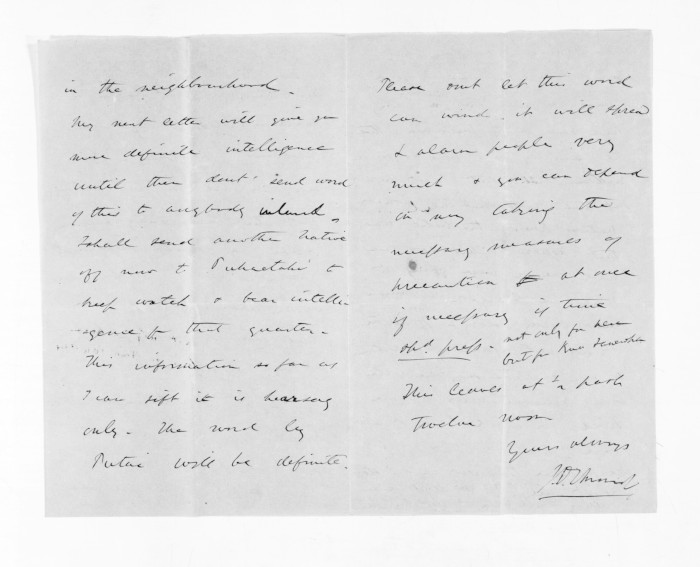 in the neighbourhood.
My next letter will give you
more definite intelligence
until then dont send word
of this to anybody inland.
I shall send another native
off now to Puketahi to
keep watch & bear intelli-
-gence fr. that quarter.
This information so far as
I can sift it is hearsay
only. The word by
will be definite.
Please dont let this word
out. it will spread
& alarm people very
much & you can depend
in my taking the
necessary measures of
precaution at once
if necessary if time
shd. press. not only for here
but for
This leaves at ½ past
twelve noon
Yours always